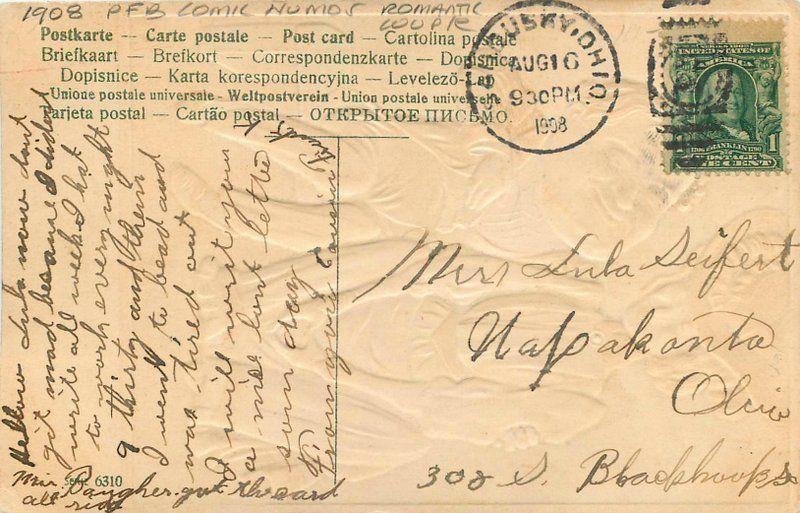 1908 PFB COMIC HUMOR ROMANTIC
COUPLE
Postkarte — Carte postale — Post card — Cartolina postale
Briefkaart — Brefkort — Correspondenzkarte — Dopisnice
Dopisnice — Karta korespondencyjna — Levelező-Lap
Unione postale universale - Weltpostverein - Union postale universelle
Tarjeta postal — Cartão postal — ОТКРЫТОЕ ПИСЬМО.
SANDUSKY, OHIO
AUG 10
930 PM
1908
SERIES 1902
UNITED STATES OF
AMERICA
1706 FRANKLIN 1790
POSTAGE
1 ONE CENT 1
Hellow Lula now dont
git mad because I didnt
write all week I hat
to work every night
9 thirty and then
I went to bead and
was tired out
I will writ you
a nice lont letter
som day
From your Cousin
Miss Lula Seifert
Wapakonta
Ohio
308 S. Blackhoof St
Serie 6310
Mir. Baugher got the card
all rit